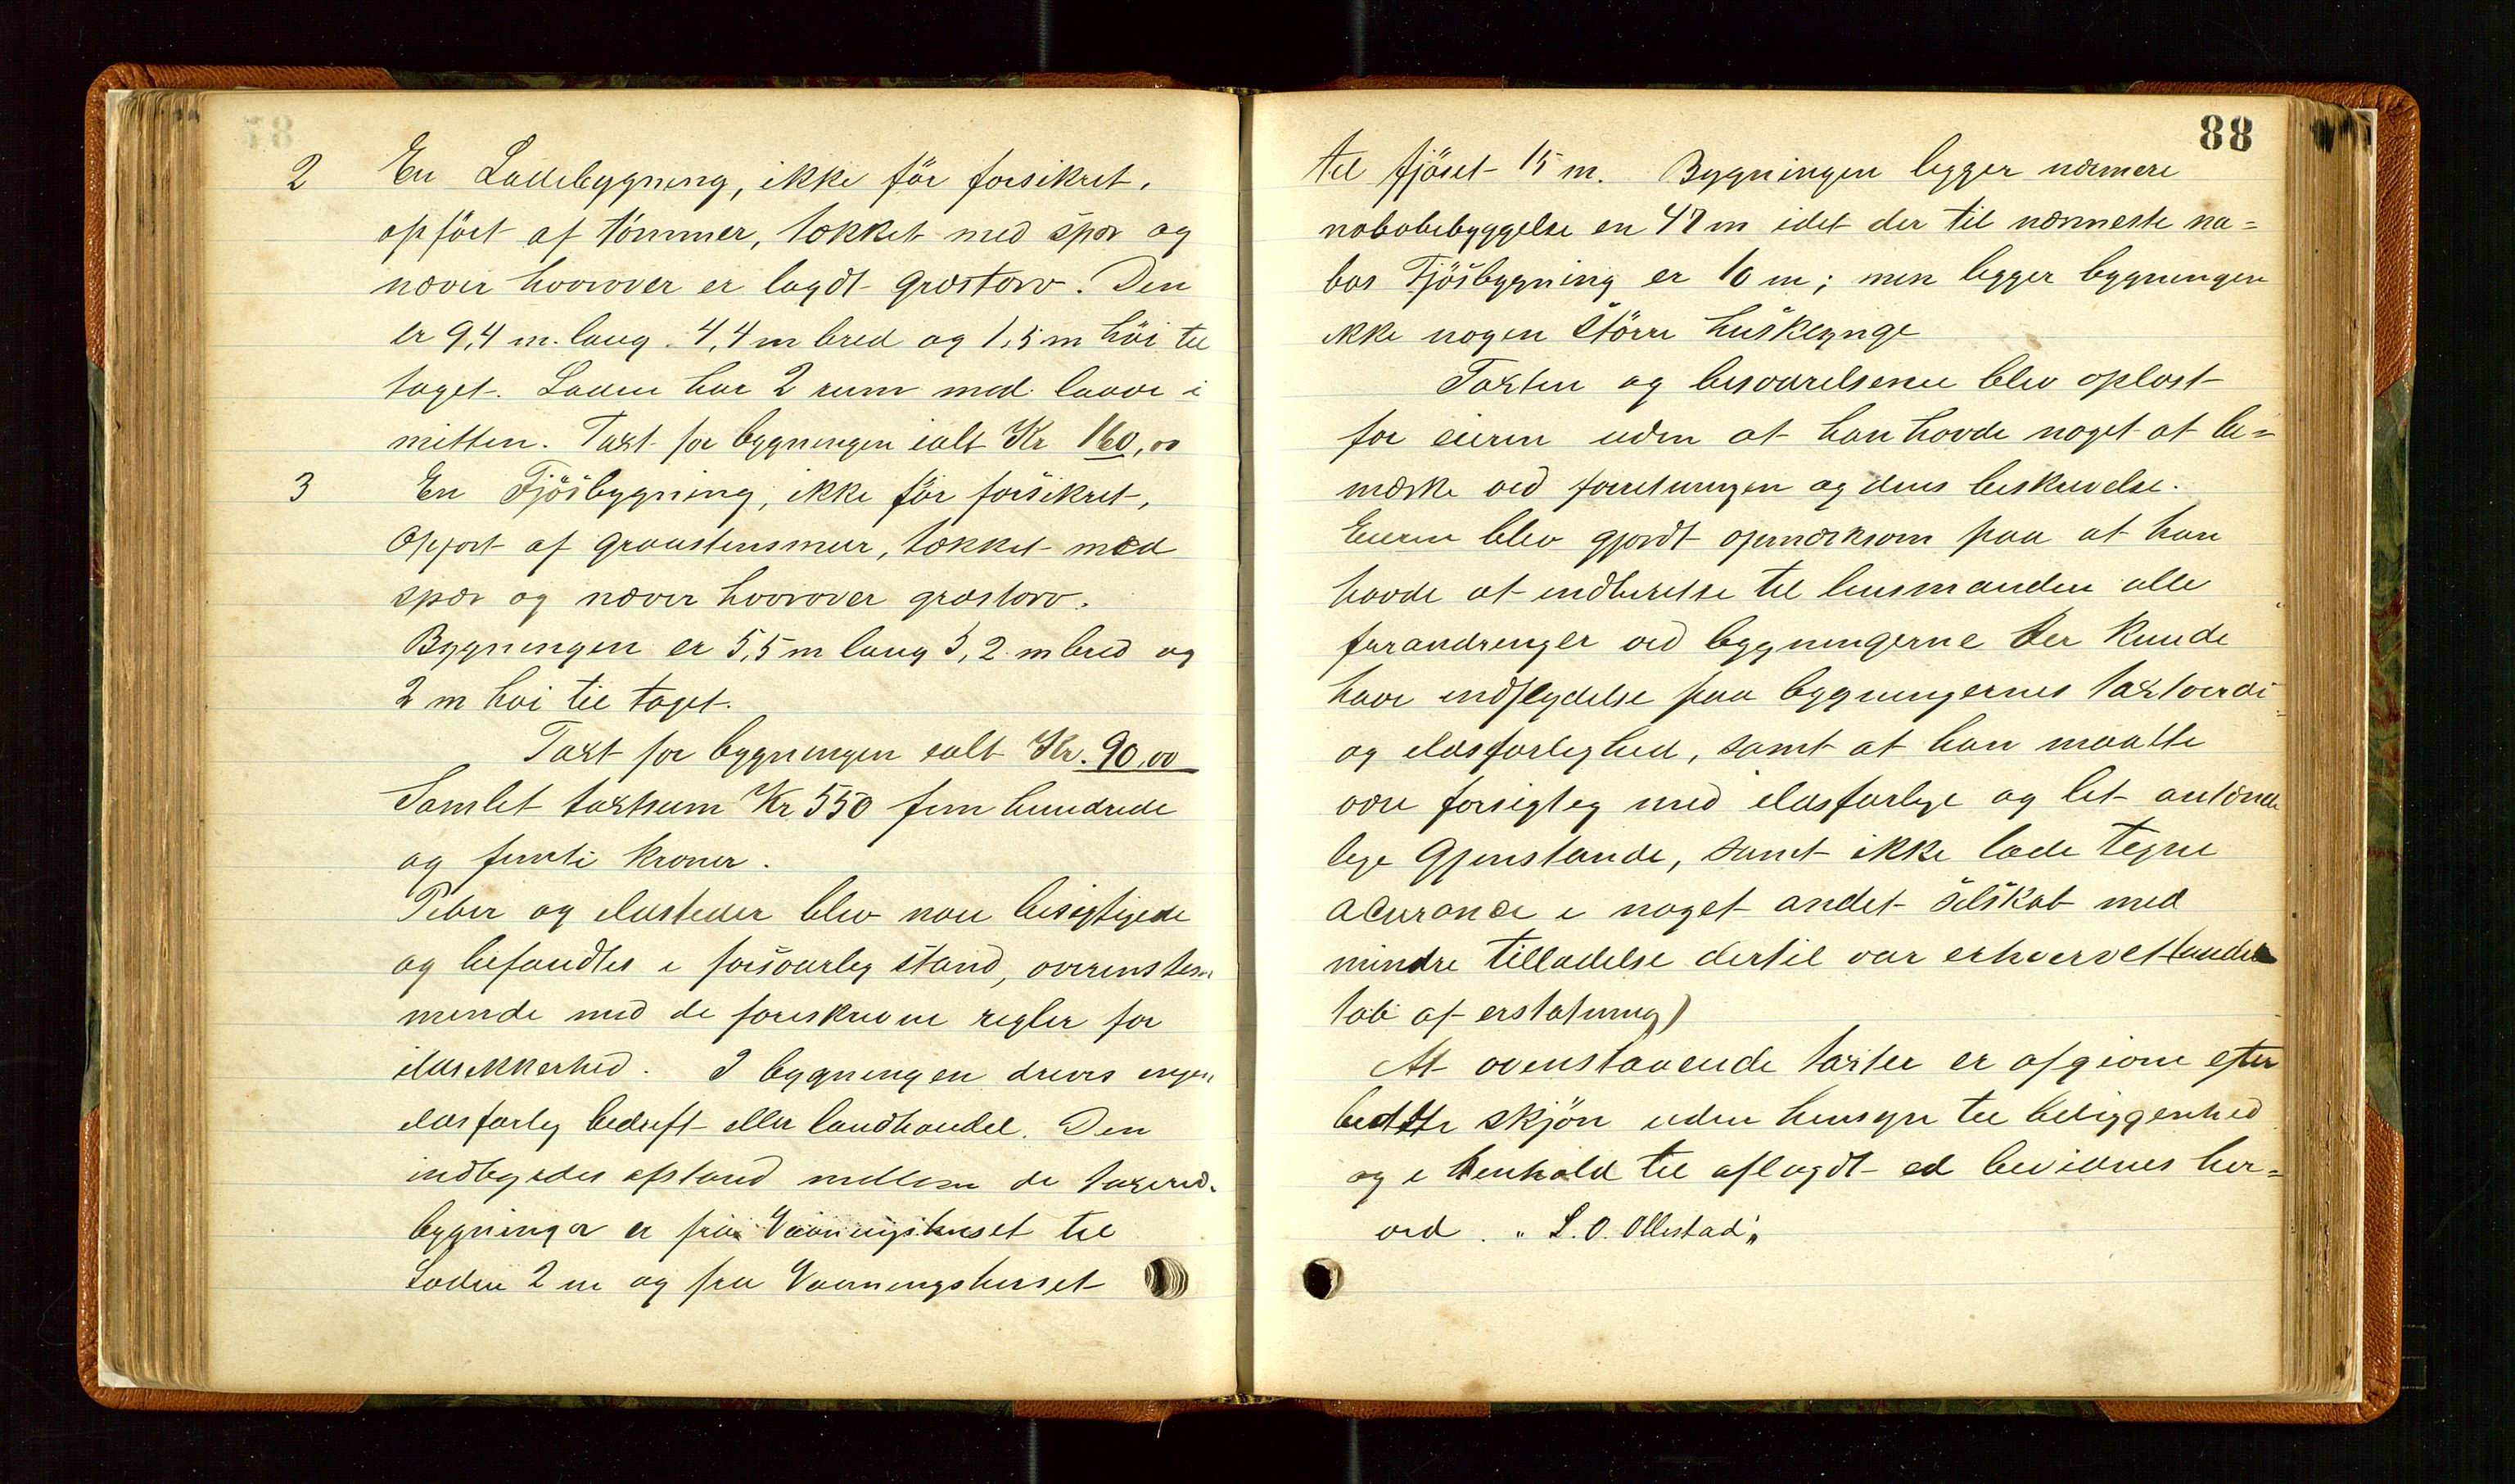 2 En Ladebygning, ikke för forsikret,
opfört af tömmer, tækket med spær og
næver hvorover er lagdt græstorv. Den
er 9,4 m. lang. 4,4 m bred og 1,5 m höi til
taget. Laden har 2 rum med laave i
mitten. Taxt for bygningen ialt Kr 160,00
3 En Fjösbygning, ikke för forsikret,
Opfört af graastensmur, tækket med
spær og næver hvorover græstorv.
Bygningen er 5,5 m lang 3,2 m bred og
2 m høi til taget.
Taxt for bygningen ialt Kr. 90,00
Samlet taxtsum Kr 550 fem hundrede
og femti kroner.
Piber og ildsteder blev nøie besigtigede
og befandtes i forsvarlig stand, overenstem
mende med de foreskrevne regler for
ildsikkerhed. I bygningen drives ingen
ildsfarlig bedrift eller landhandel. Den
indbyrdes afstand mellem de taxered.
bygninger er fra Vaaningshuset til
Laden 2 m og fra Vaaningshuset
88
til fjöset 15 m. Bygningen ligger nærmere
nabobebyggelse en 47 m idet der til nærmeste na=
bos Fjösbygning er 10 m; men ligger bygningen
ikke nogen större huskynge
Taxten og besvarelserne blev oplæst
for eieren uden at han havde noget at be=
mærke ved forretningen og dens beskrivelse.
Eieren blev gjordt opmærksom paa at han
havde at indberette til lensmanden alle
forandringer ved bygningerne der kunde
have indflydelse paa bygningernes taxtværdi
og ildsfarlighed, samt at han maatte
være forsigtig med ildsfarlige og let antænde
lige Gjenstande, samt ikke lade tegne
acurance i noget andet selskab med
mindre tilladelse dertil var erhvervet (under
tab af erstatning)
At ovenstaaende taxter er afgivne efter
bedste skjön uden hensyn til beliggenhed
og i henhold til aflagdt ed bevidnes her=
ved. "L. O. Ollestad"